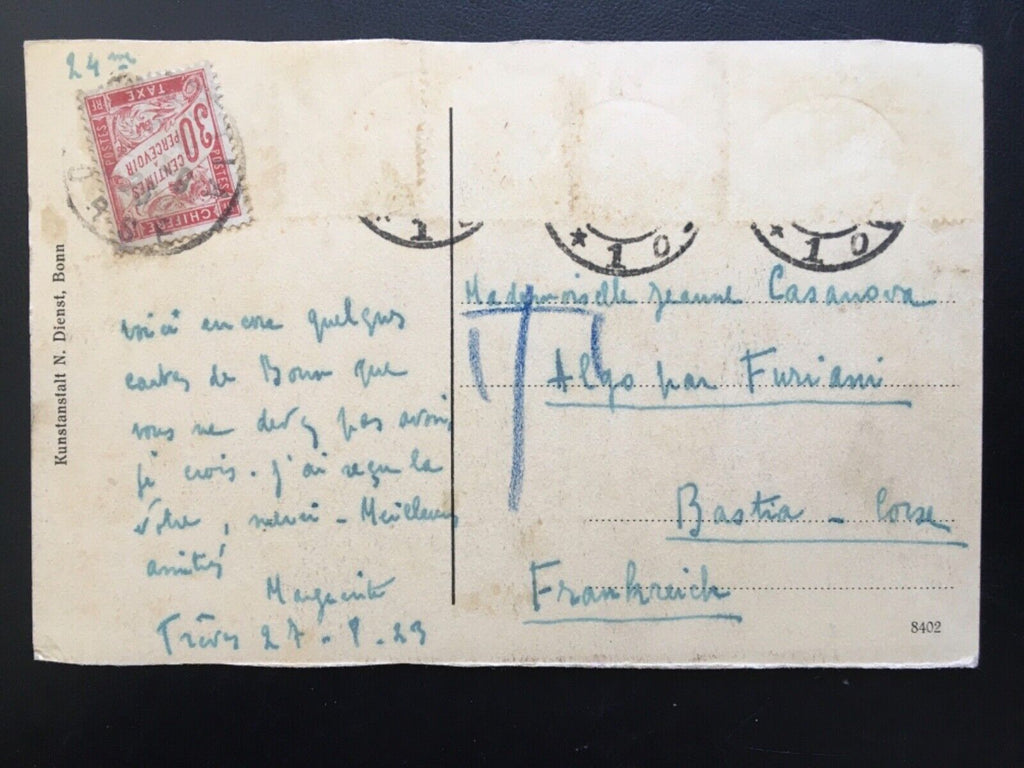 24 me
POSTES RF
TAXE
30
CENTIMES
PERCEVOIR
POSTES
CHIFFRE
1
* 1 0
* 1 0
Kunstanstalt N. Dienst, Bonn
voici encore quelques
cartes de Bonn que
vous ne devez pas avoir,
je crois. J'ai reçu la
vôtre, merci - Meilleures
amitiés
Marguerite
Trèves 27 - 8 - 23
Mademoiselle Jeanne Casanova
T
Algo par Furiani
Bastia - Corse
Frankreich
8402